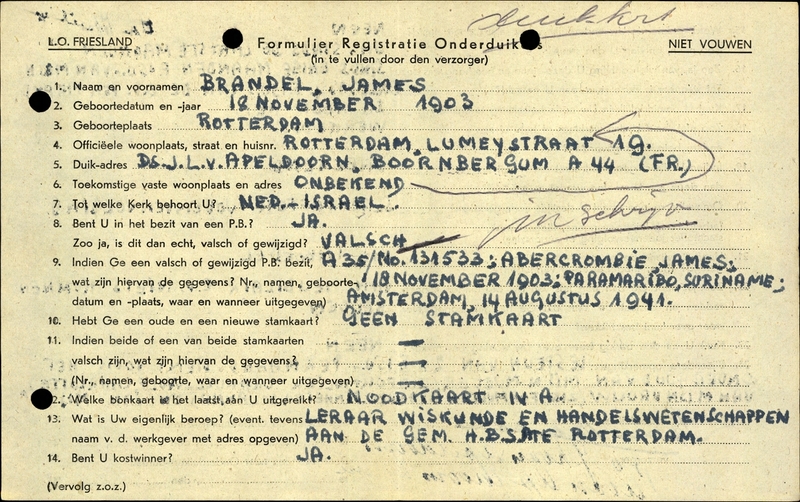 L.O. FRIESLAND
Formulier Registratie Onderduikers
NIET VOUWEN
(In te vullen door den verzorger)
1. Naam en voornamen BRANDEL, JAMES
2. Geboortedatum en -jaar 18 NOVEMBER 1903
3. Geboorteplaats ROTTERDAM
4. Officiëele woonplaats, straat en huisnr. ROTTERDAM, LUMEYSTRAAT 19.
5. Duik-adres Ds. J. L. v. APELDOORN, BOORNBERGUM A 44 (FR.)
6. Toekomstige vaste woonplaats en adres ONBEKEND
7. Tot welke Kerk behoort U? NED.-ISRAEL.
8. Bent U in het bezit van een P.B.? JA.
inschrijv
Zoo ja, is dit dan echt, valsch of gewijzigd? VALSCH
9. Indien Ge een valsch of gewijzigd P.B. bezit, A35/No. 131533; ABERCROMBIE, JAMES;
wat zijn hiervan de gegevens? Nr., namen, geboorte- 18 NOVEMBER 1903; PARAMARIBO, SURINAME;
datum en -plaats, waar en wanneer uitgegeven) AMSTERDAM, 14 AUGUSTUS 1941.
10. Hebt Ge een oude en een nieuwe stamkaart? GEEN STAMKAART
11. Indien beide of een van beide stamkaarten
valsch zijn, wat zijn hiervan de gegevens?
(Nr., namen, geboorte, waar en wanneer uitgegeven)
12. Welke bonkaart is het laatst aan U uitgereikt? NOODKAART IV A
13. Wat is Uw eigenlijk beroep? (event. tevens LERAAR WISKUNDE EN HANDELSWETENSCHAPPEN
naam v. d. werkgever met adres opgeven) AAN DE GEM. H.B.S. TE ROTTERDAM.
14. Bent U kostwinner? JA.
(Vervolg z.o.z.)